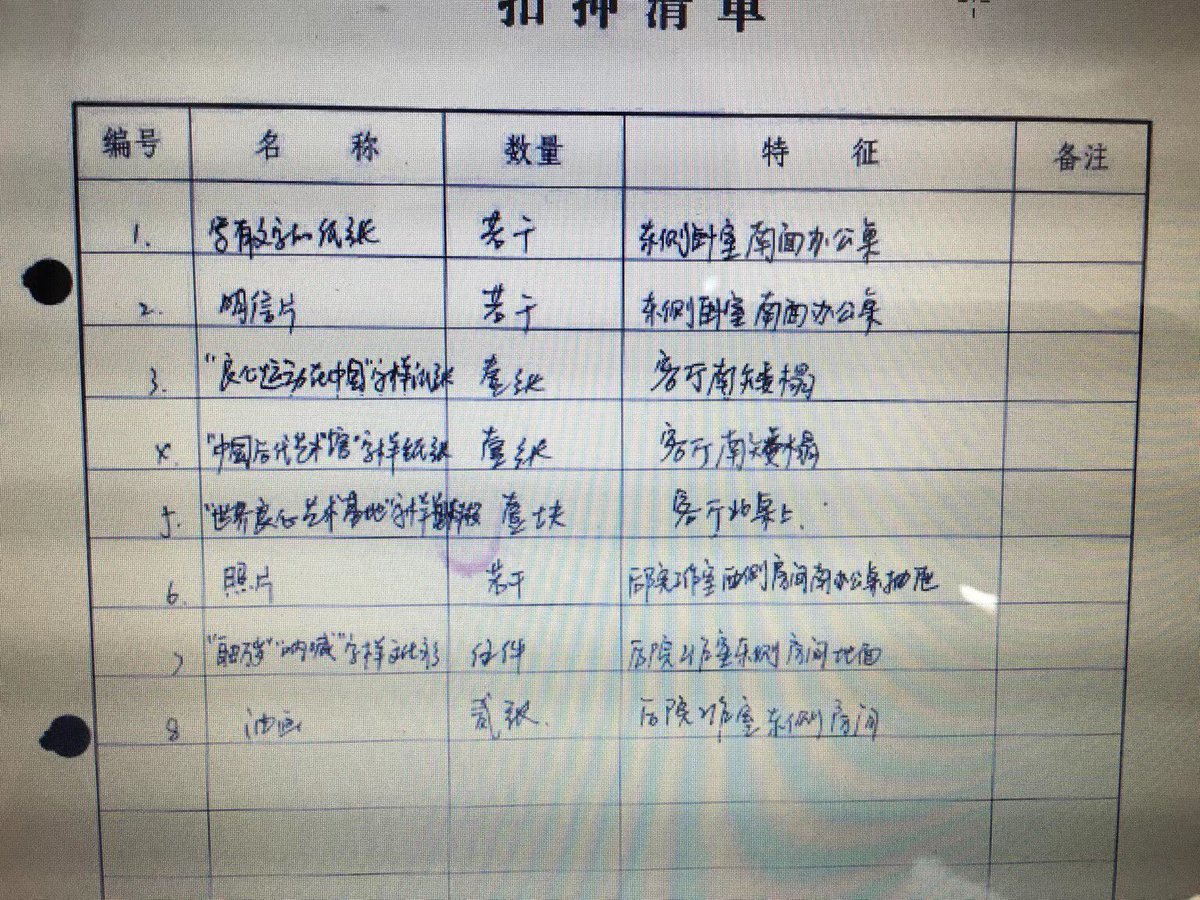 扣押清单
编号 名称 数量 特征 备注
1. 写有文字的纸张 若干 东侧卧室南面办公桌
2. 明信片 若干 东侧卧室南面办公桌
3. "良心运动在中国"字样纸张 壹张 客厅南矮榻
4. "中国后代艺术馆"字样纸张 壹张 客厅南矮榻
5. "世界良心艺术基地"字样 壹块 客厅北桌上
6. 照片 若干 后院工作室西侧房间南办公桌抽屉
7 "呐喊"字样文化衫 件 后院工作室东侧房间地面
8 油画 贰张 后院工作室东侧房间